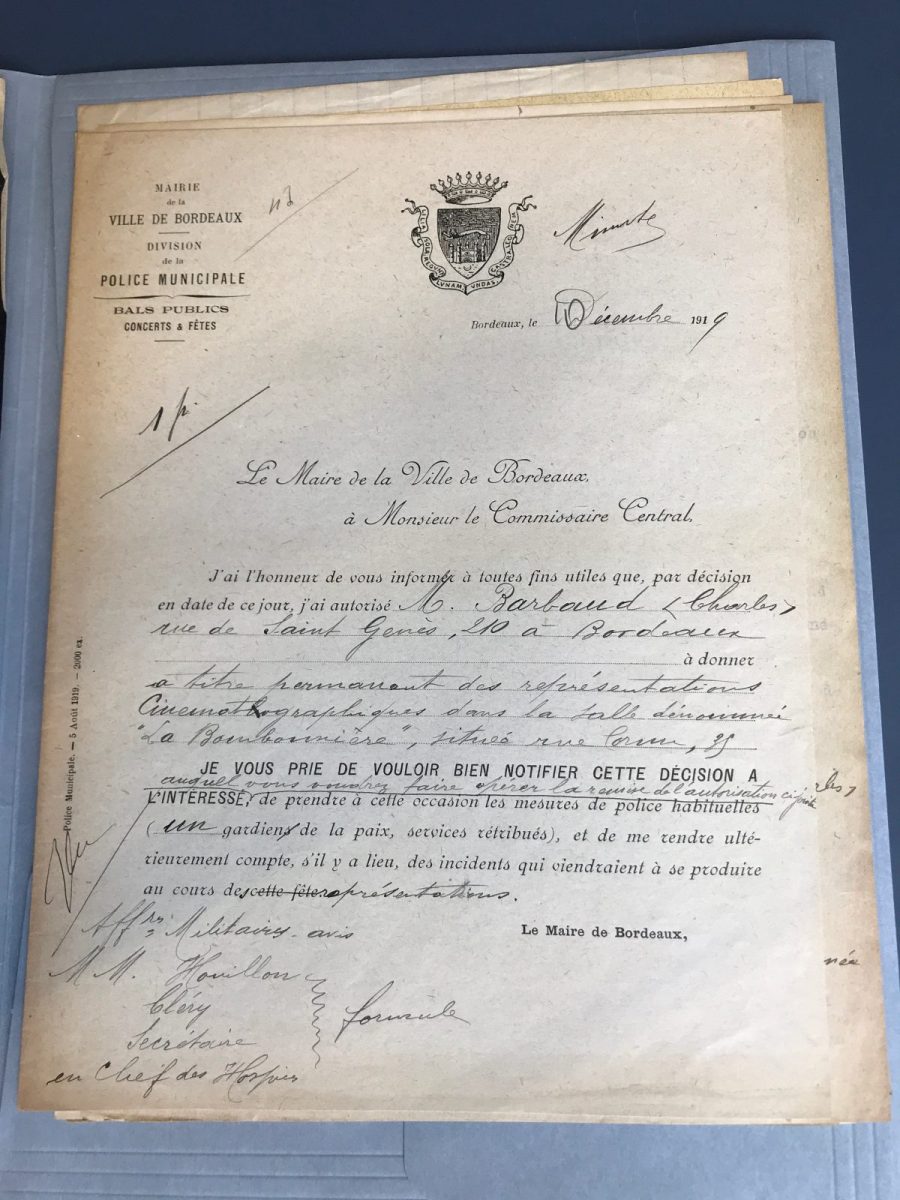 MAIRIE
de la
VILLE DE BORDEAUX
DIVISION
de la
POLICE MUNICIPALE
BALS PUBLICS
CONCERTS & FÊTES
LILIA SOLA REGUNT LUNAM UNDAS CASTRA LEONEM
Minute
Bordeaux, le Décembre 1919
1 p.
Le Maire de la Ville de Bordeaux,
à Monsieur le Commissaire Central,
J'ai l'honneur de vous informer à toutes fins utiles que, par décision
en date de ce jour, j'ai autorisé M. Barbaud (Charles)
rue de Saint Genès, 210 à Bordeaux
à donner
à titre permanent des représentations
Cinematographiques dans la salle dénommée
"La Bombonnière", située rue 35
JE VOUS PRIE DE VOULOIR BIEN NOTIFIER CETTE DÉCISION A
auquel vous voudrez faire opérer la remise de l'autorisation ci jointe
L'INTÉRESSÉ, de prendre à cette occasion les mesures de police habituelles
(un gardiens de la paix, services rétribués), et de me rendre ulté-
rieurement compte, s'il y a lieu, des incidents qui viendraient à se produire
au cours des cette fête représentations.
Le Maire de Bordeaux,
Police Municipale. — 5 Août 1919. — 2000 ex.
Affres Militaires avis
MM. Houillon
Cléry
Secrétaire
en Chef des Hospices
formule
née